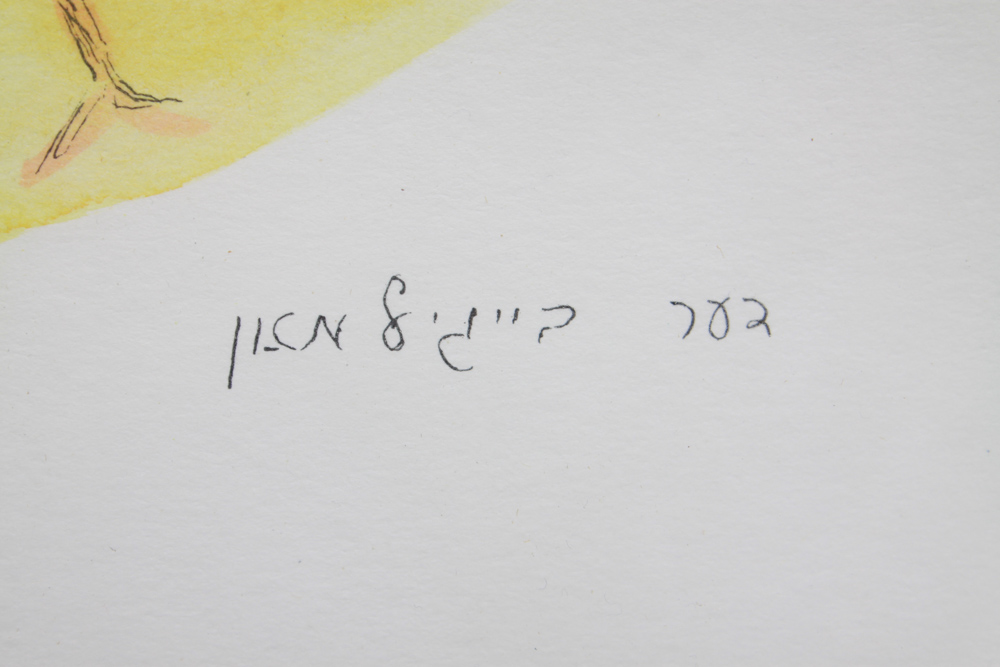 דער בייגיל מאן